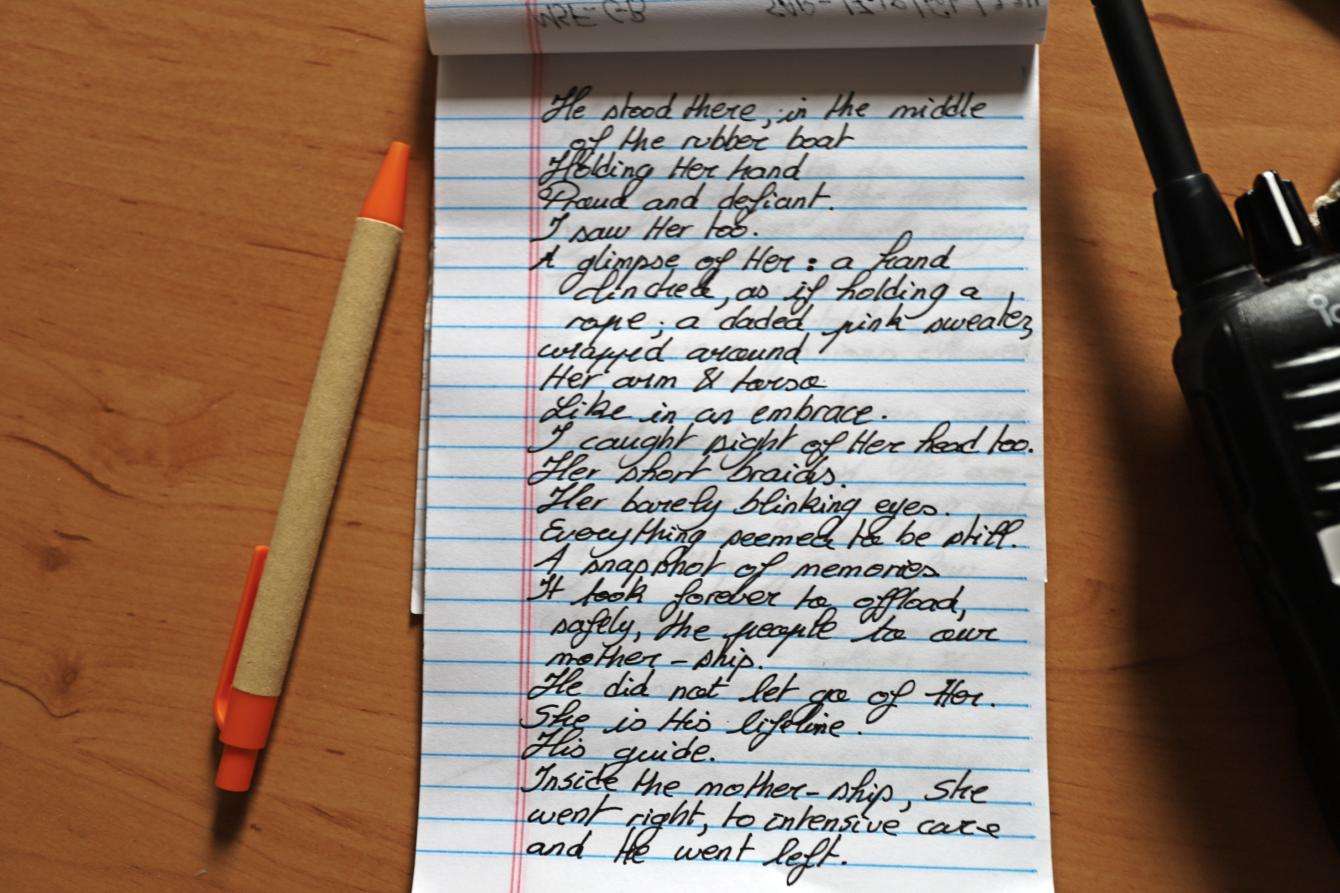 He stood there, in the middle
of the rubber boat
Holding Her hand
Proud and defiant.
I saw Her too.
A glimpse of Her : a hand
clinched, as if holding a
rope ; a daded pink sweater,
wrapped around
Her arm & torso
Like in an embrace.
I caught sight of Her head too.
Her short braids.
Her barely blinking eyes.
Everything seemed to be still.
A snapshot of memories
It took forever to offload,
safely, the people to our
mother-ship.
He did not let go of Her.
She is His lifeline.
His guide.
Inside the mother-ship, She
went right, to intensive care
and He went left.